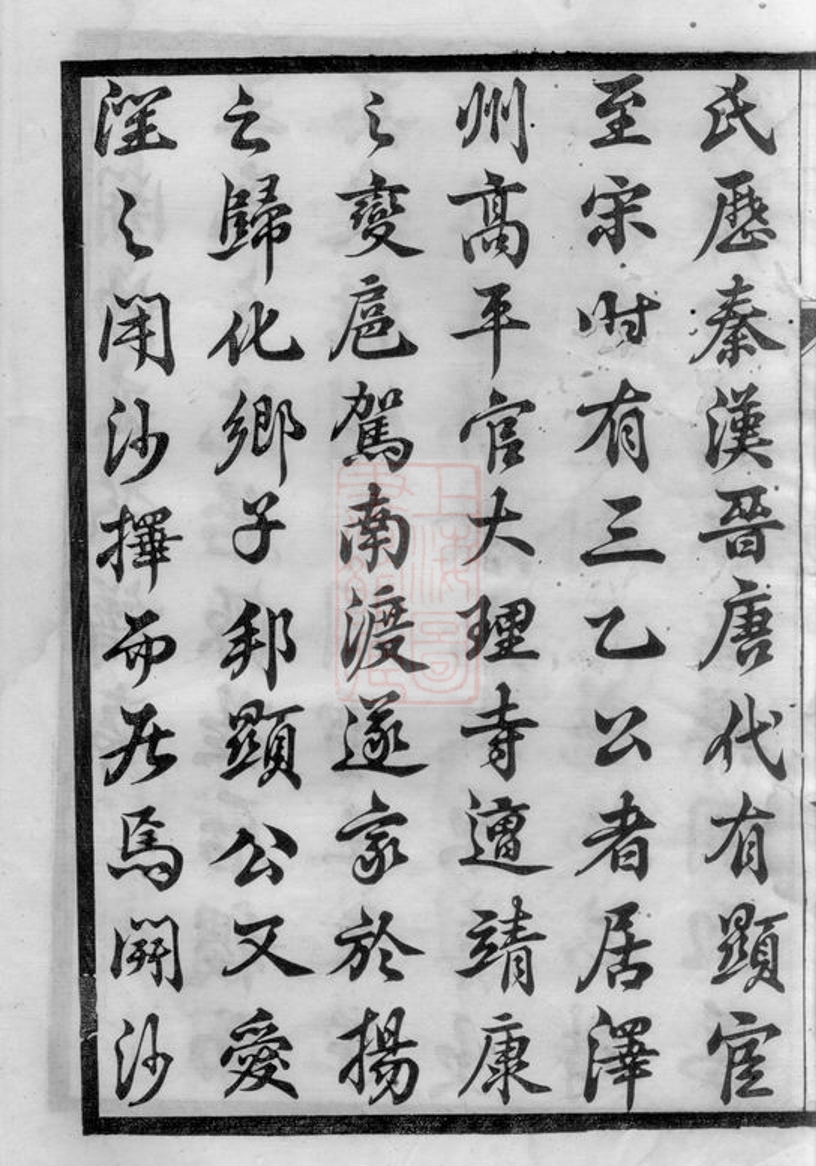 氏歷秦漢晉唐代有顯宦
至宋時有三乙公者居澤
州高平官大理寺遭靖康
之變扈駕南渡遂家於揚
之歸化鄉子邦顯公又愛
江之開沙擇而居焉開沙